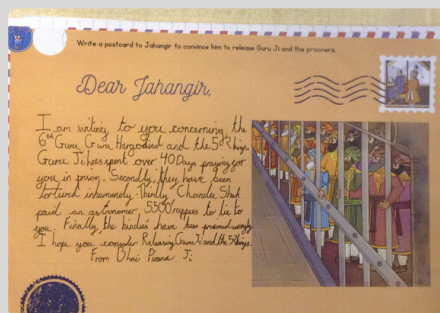 Write a postcard to Jahangir to convince him to release Guru Ji and the prisoners.
Dear Jahangir,
I am writing to you concerning the
6th Guru Guru Hargobind and the 52 kings
Guru Ji has spent over 40 Days praying for
you in prison. Secondly, they have been
tortured inhumanely. Thirdly Chandu Shah
paid an astronomer 5500 rupees to lie to
you. Finally, the hindus have been prisoned wrongly
I hope you consider Releasing Guru Ji and the 52 kings.
From Bhai Ji